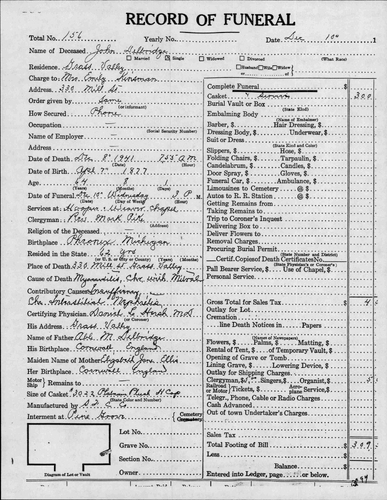 RECORD OF FUNERAL
Total No. 156 Yearly No. Date Dec 10th 1
Name of Deceased John Delbridge
Married Single Widowed Divorced (What Race)
Residence: Grass Valley Husband/Wife/Widow
Charge to Mrs. Emily Kinsman
Address: 232 Mill St.
Order given by Same
(or informant)
How Secured Phone
Occupation —
(Social Security Number)
Name of Employer —
Address —
Date of Death Dec 8th 1941 7:55 A M.
Date of Birth Apr 7th 1877
Age 64 8 1
Date of Funeral Dec 10th Wednesday 2 P M.
(Date) (Day of Week)
Services at Hooper & Weaver Chapel
Clergyman Rev. Mark
Religion of the Deceased
Birthplace Phoenix Michigan
Resided in the State 62
Place of Death 232 Mill St Grass Valley
Cause of Death Myocarditis, Chr with Mitral
Contributory Causes Insufficiency
Chr Interstitial Nephritis
Certifying Physician Daniel L. Hirsh M.D.
(or Coroner)
His Address Grass Valley
Name of Father M. Delbridge
His Birthplace Cornwall England
Maiden Name of Mother Elizabeth Jane
Her Birthplace Cornwall England
Motor Ship Remains to —
Size of Casket
(State Color and Number)
Manufactured by
Interment at Pine Grove Cemetery
Crematory
Lot No.
Grave No.
Section No.
Owner
Diagram of Lot or Vault
Complete Funeral
Casket 300
Burial Vault or Box
(State Kind)
Embalming Body
(Name of Embalmer)
Barber, $ Hair Dressing, $
Dressing Body, $ Underwear, $
Suit or Dress
(State Kind and Color)
Slippers, $ Hose, $
Folding Chairs, $ Tarpaulin, $
Candelabrum, $ Candles, $
Door Spray, $ Gloves, $
Funeral Car, $ Ambulance, $
Limousines to Cemetery @ $
Autos to R. R. Station @ $
Getting Remains from
Taking Remains to
Trip to Coroner's Inquest
Delivering Box to
Deliver Flowers to
Removal Charges
Procuring Burial Permit
(State Number and District)
Certif. Copies of Death Certificate No.
(State Physician's or Coroner's)
Pall Bearer Service, $ Use of Chapel, $
Personal Service
Gross Total for Sales Tax 4
Outlay for Lot
Cremation
line Death Notices in Papers
(Name of Newspapers)
Flowers, $ Palms, $ Matting, $
Rental of Tent, $ of Temporary Vault, $
Opening of Grave or Tomb
Lining Grave, $ Lowering Device, $
Outlay for Shipping Charges
Clergyman, $ Singers, $ Organist, $ 5
Tickets, $
Telegr., Phone, Cable or Radio Charges
Cash Advanced
Out of town Undertaker's Charges
Sales Tax
Total Footing of Bill 309
Less
Balance
Entered into Ledger, page or below.